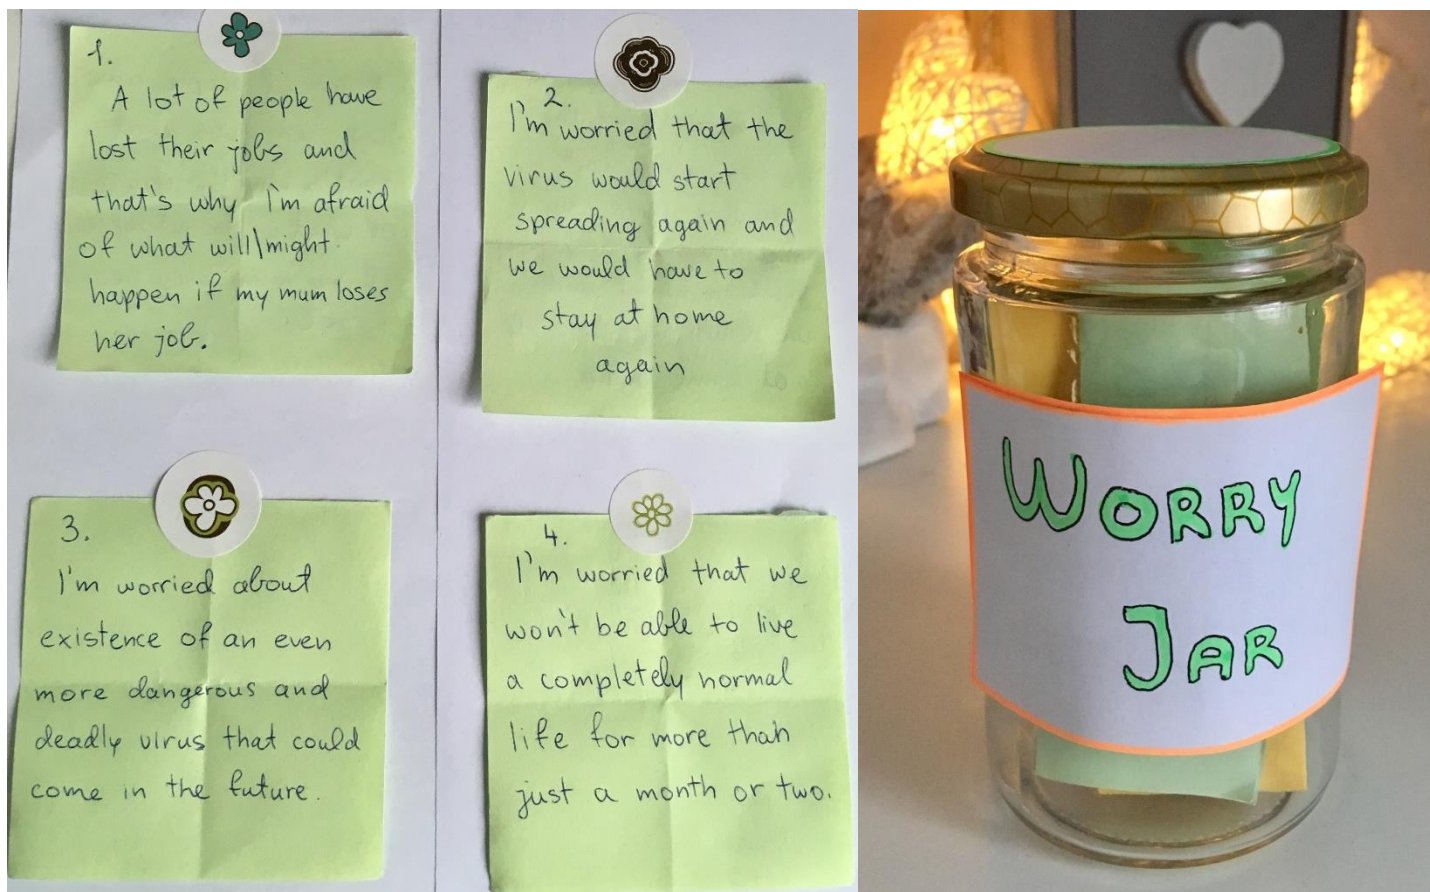 1.
A lot of people have
lost their jobs and
that's why I'm afraid
of what will\might
happen if my mum loses
her job.
2.
I'm worried that the
virus would start
spreading again and
we would have to
stay at home
again
3.
I'm worried about
existence of an even
more dangerous and
deadly virus that could
come in the future.
4.
I'm worried that we
won't be able to live
a completely normal
life for more than
just a month or two.
WORRY
JAR